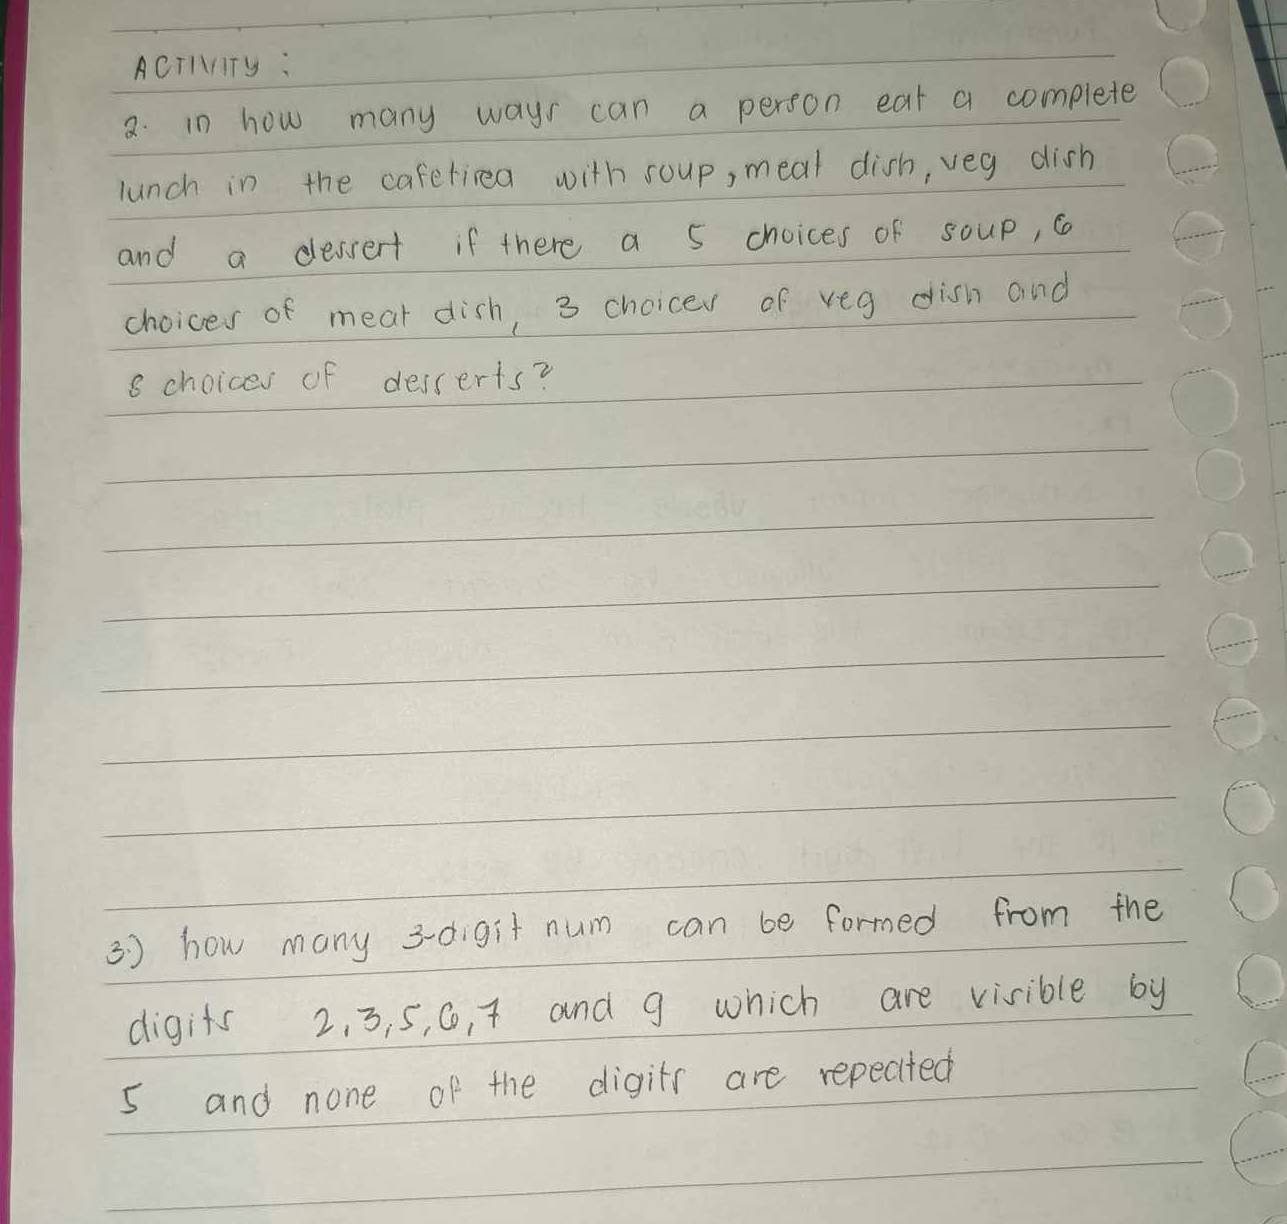 ACTIVITY :
2. in how many ways can a person eat a complete
lunch in the cafetirea with soup, meat dish, veg dish
and a dessert if there a 5 choices of soup, 6
choices of meat dish, 3 choices of veg dish and
8 choices of desserts?
3.) how many 3-digit num can be formed from the
digits 2,3,5,6,7 and 9 which are visible by
5 and none of the digits are repeated